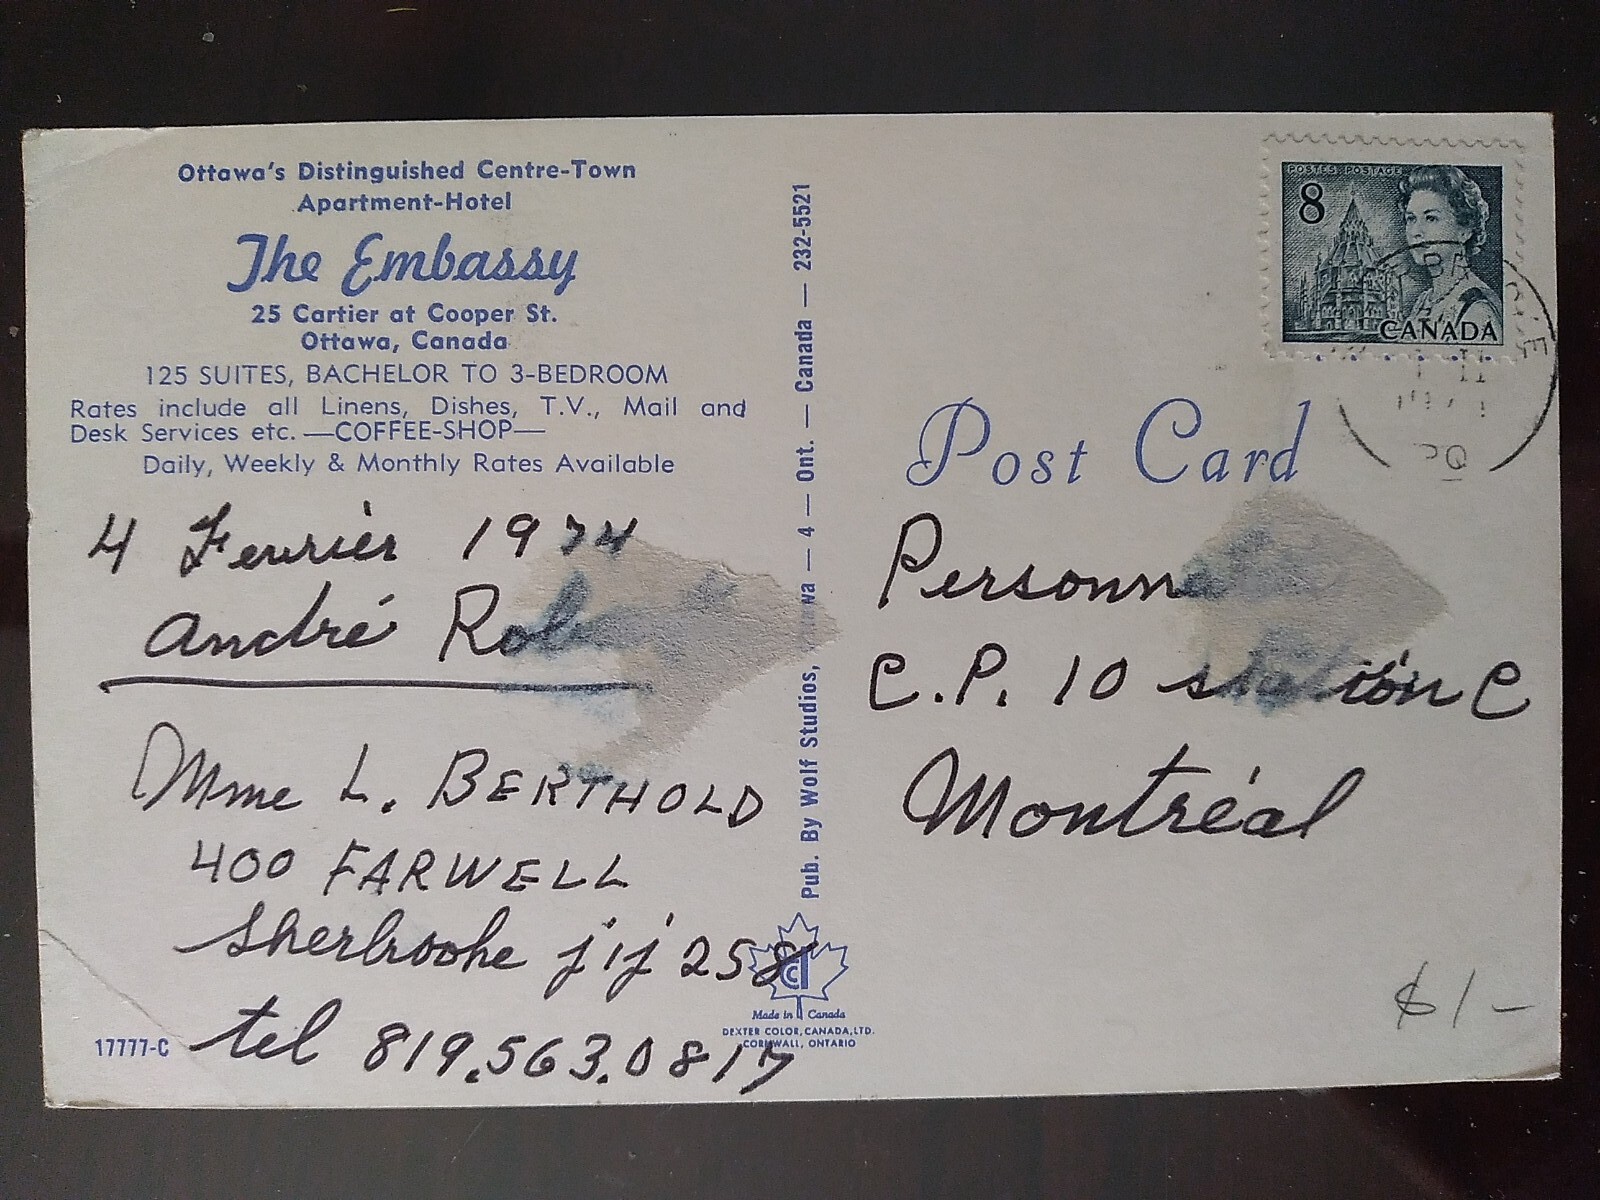 Ottawa's Distinguished Centre-Town
Apartment-Hotel
The Embassy
25 Cartier at Cooper St.
Ottawa, Canada
125 SUITES, BACHELOR TO 3-BEDROOM
Rates include all Linens, Dishes, T.V., Mail and
Desk Services etc. —COFFEE-SHOP—
Daily, Weekly & Monthly Rates Available
4 Fevrier 1974
André
Mme L. BERTHOLD
400 FARWELL
Sherbrooke j1j 258
tel 819.563.0817
17777-C
Pub. By Wolf Studios, — 4 — Ont. — Canada — 232-5521
Made in Canada
DEXTER COLOR, CANADA, LTD.
CORNWALL, ONTARIO
POSTES POSTAGE
8
CANADA
Post Card
C.P. 10 station C
Montréal
$1-